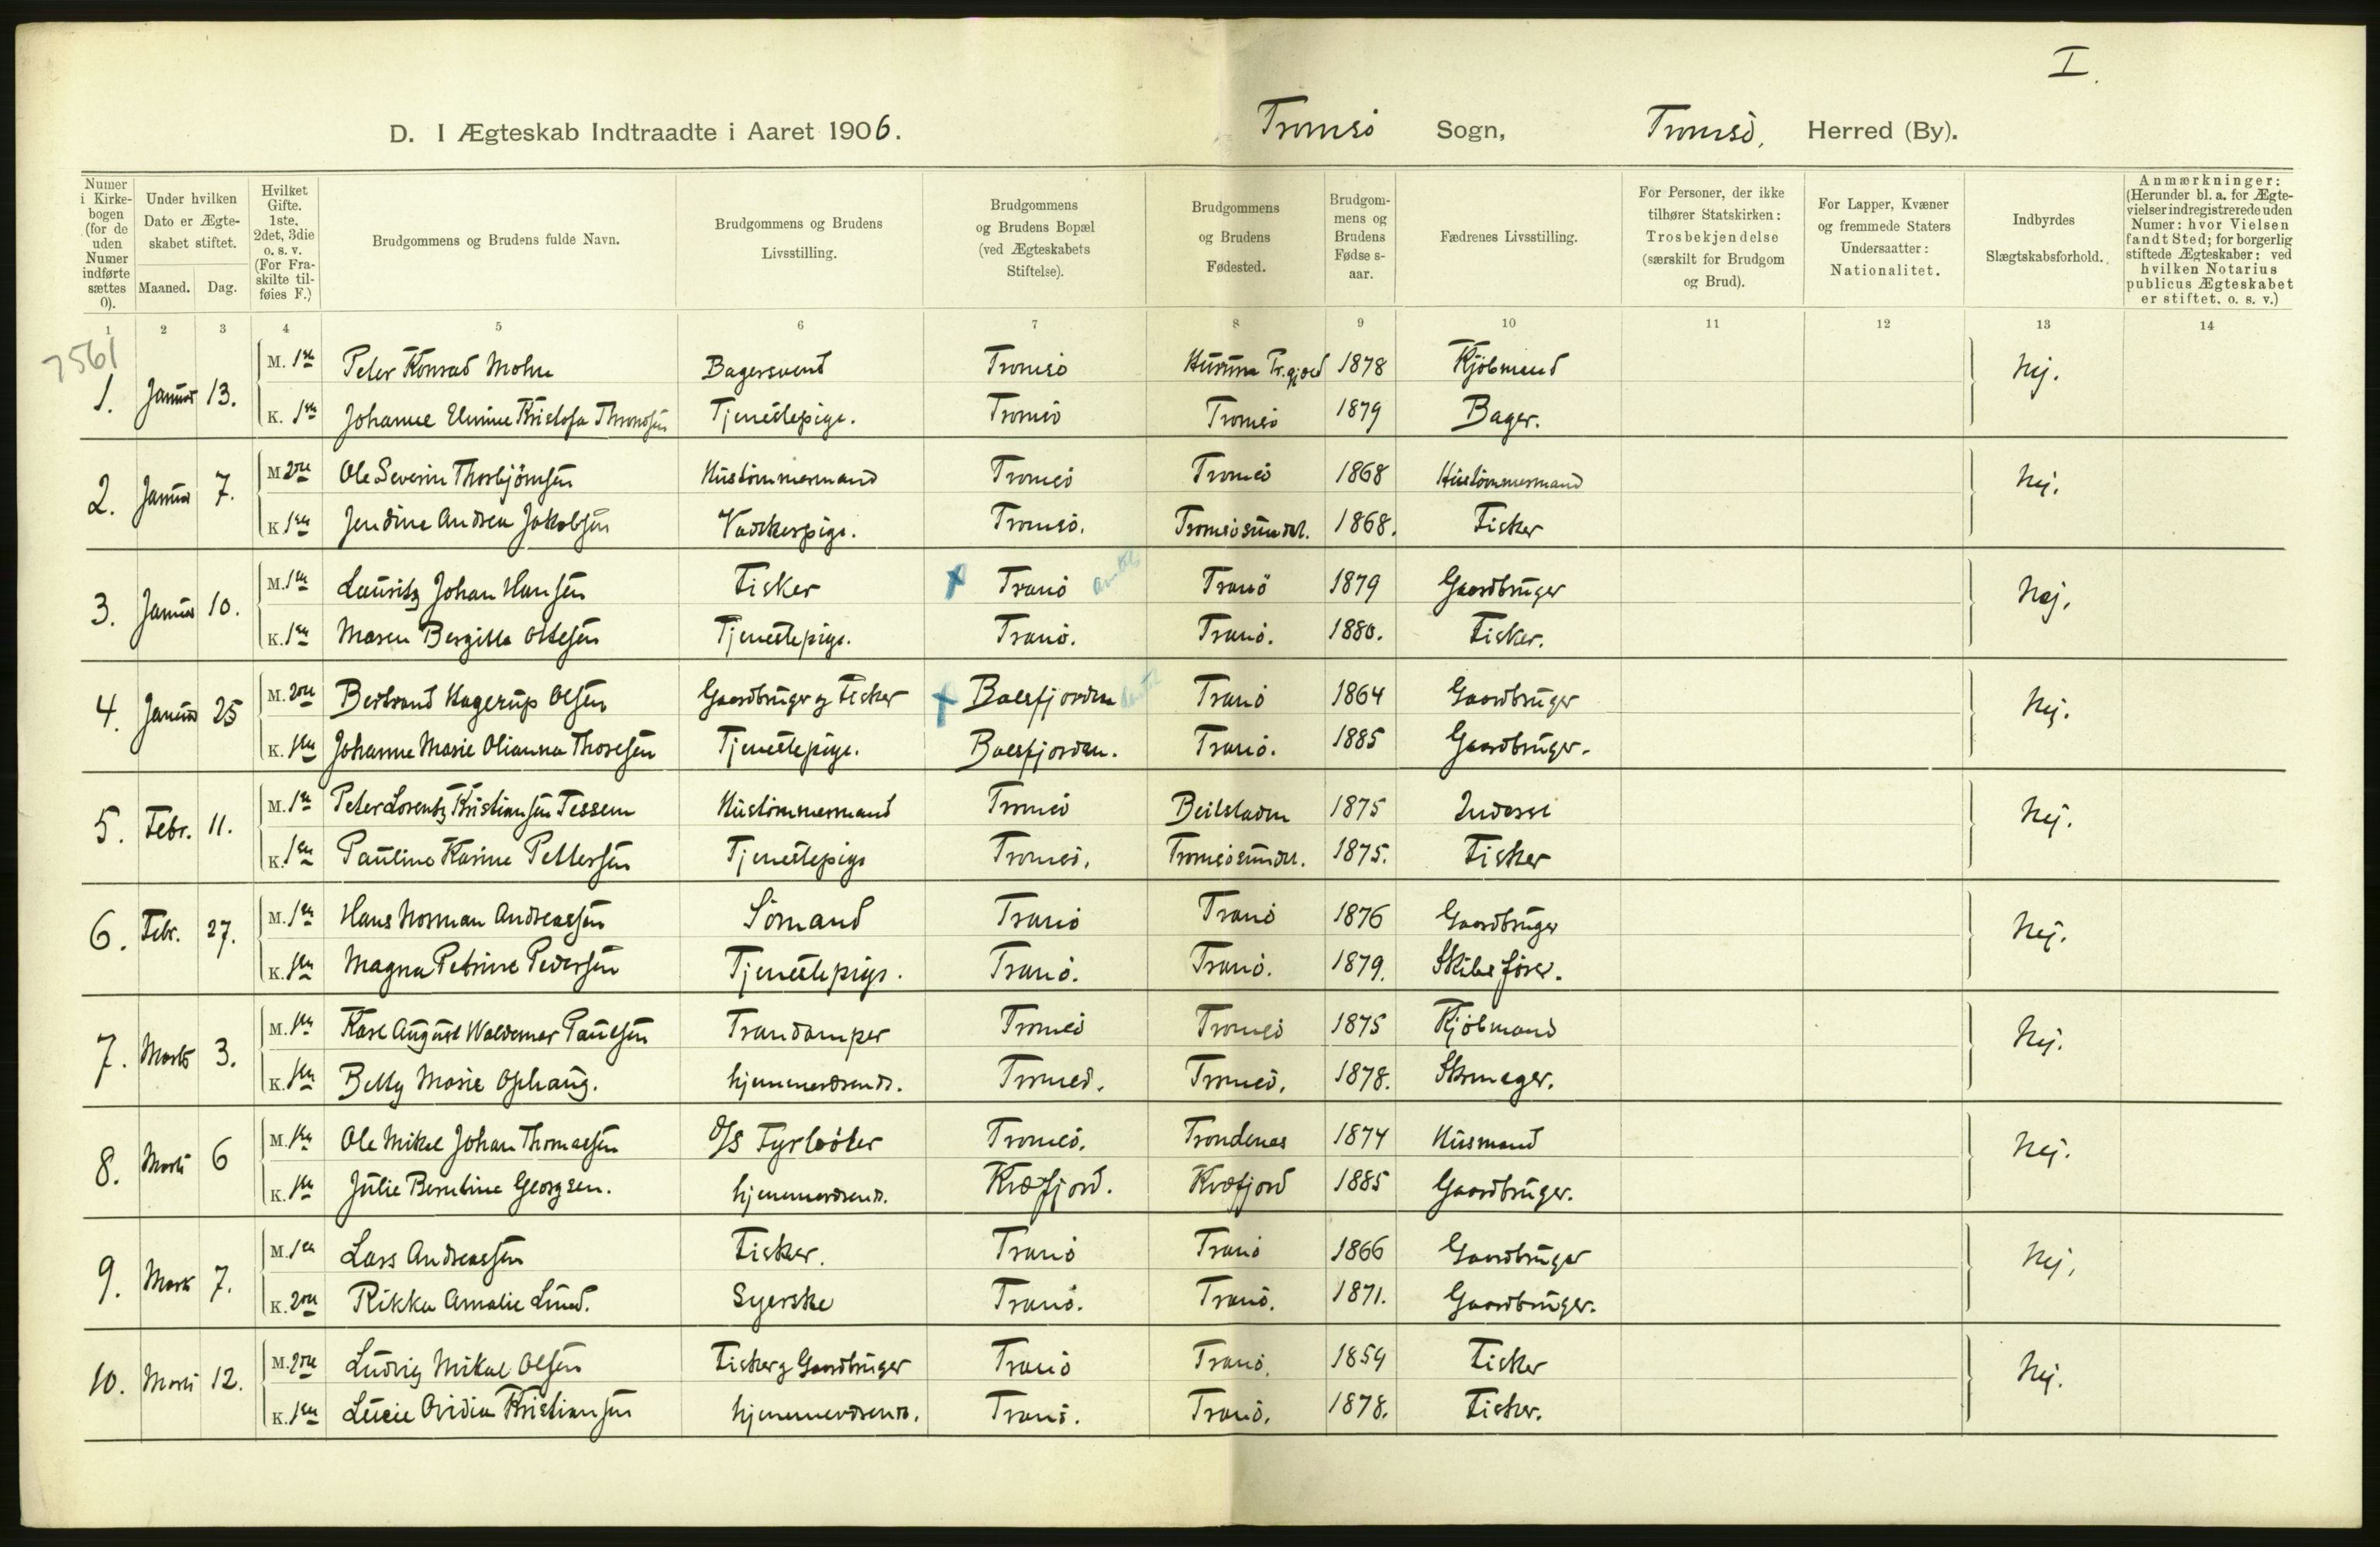 I.
D. I Ægteskab Indtraadte i Aaret 1906. Tromsö Sogn, Tromsö, Herred (By).
Numer i Kirkebogen (for de uden Numer indførte sættes 0).
Under hvilken Dato er Ægteskabet stiftet.
Maaned. Dag.
Hvilket Gifte. 1ste. 2det, 3die o. s. v. (For Fraskilte tilføies F.)
Brudgommens og Brudens fulde Navn.
Brudgommens og Brudens Livsstilling.
Brudgommens og Brudens Bopæl (ved Ægteskabets Stiftelse).
Brudgommens og Brudens Fødested.
Brudgommens og Brudens Fødselsaar.
Fædrenes Livsstilling.
For Personer, der ikke tilhører Statskirken: Trosbekjendelse (særskilt for Brudgom og Brud).
For Lapper, Kvæner og fremmede Staters Undersaatter: Nationalitet.
Indbyrdes Slægtskabsforhold.
Anmærkninger: (Herunder bl. a. for Ægtevielser indregistrerede uden Numer: hvor Vielsen fandt Sted; for borgerlig stiftede Ægteskaber: ved hvilken Notarius publicus Ægteskabet er stiftet. o. s. v.)
1 2 3 4 5 6 7 8 9 10 11 12 13 14
7561
M. 1ste Peter Konrad Mohn Bagersvend Tromsö 1878 Kjöbmand
1. Januar 13. Nej.
K. 1ste Johanne Elvine Kristofa Thronsen Tjenestepige. Tromsö Tromsö 1879 Bager.
M 2den Ole Severin Thorbjörnsen Hustömmermand Tromsö Tromsö 1868 Hustömmermand
2. Januar 7. Nej.
K 1ste Jendine Andrea Jakobsen Vaskerpige. Tromsö. Tromsösundet. 1868. Fisker
M. 1ste Lauritz Johan Hansen Fisker Tranö Tranö 1879 Gaardbruger
3. Januar 10. Nej.
K. 1ste Maren Bergitta Ottesen Tjenestepige. Tranö. Tranö. 1880. Fisker.
M. 2den Bertrand Hagerup Olsen Gaardbruger og Fisker Balsfjorden Tranö 1864 Gaardbruger
4. Januar 25 Nej.
K. 1ste Johanne Marie Olianna Thoresen Tjenestepige. Balsfjorden. Tranö. 1885 Gaardbruger.
M. 1ste Peter Lorentz Kristiansen Tessem Hustömmermand Tromsö Beitstaden 1875 Inderst
5. Febr. 11. Nej.
K. 1ste Pauline Karine Pettersen Tjenestepige Tromsö. Tromsösundet. 1875. Fisker
M. 1ste Hans Norman Andreassen Sömand Tranö Tranö 1876 Gaardbruger
6. Febr. 27. Nej.
K. 1ste Magna Petrine Pedersen Tjenestepige. Tranö. Tranö. 1879. Skibsförer.
M. 1ste Karl August Waldemar Paulsen Trandamper Tromsö Tromsö 1875 Kjöbmand
7. Marts 3. Nej.
K. 1ste Betty Marie Ophaug. hjemmeværende. Tromsö. Tromsö. 1878. Skomager.
M. 1ste Ole Mikal Johan Thomassen D/S Fyrböter Tromsö. Trondenes 1874 Husmand
8. Marts 6 Nej.
K. 1ste Julie Berntine Georgsen. hjemmeværende. Kvæfjord. Kvæfjord 1885 Gaardbruger.
M. 1ste Lars Andreassen Fisker. Tranö Tranö 1866 Gaardbruger
9. Marts 7. Nej.
K. 2den Rikka Amalie Lund. Syerske Tranö. Tranö. 1871. Gaardbruger.
M. 2den Ludvig Mikal Olsen Fisker og Gaardbruger Tranö Tranö. 1859 Fisker
10. Marts 12. Nej.
K. 1ste Lucie Ovidia Kristiansen hjemmeværende. Tranö. Tranö. 1878. Fisker.